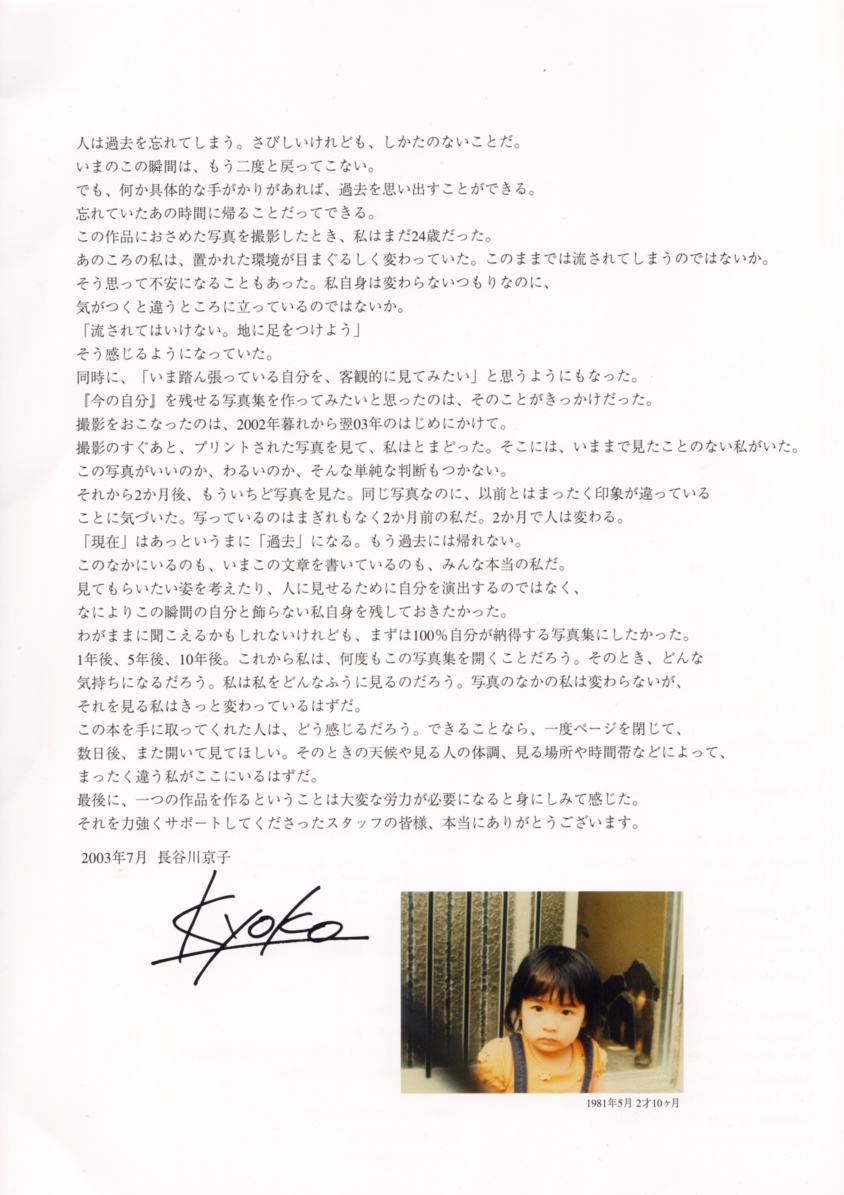 人は過去を忘れてしまう。さびしいけれども、しかたのないことだ。
いまのこの瞬間は、もう二度と戻ってこない。
でも、何か具体的な手がかりがあれば、過去を思い出すことができる。
忘れていたあの時間に帰ることだってできる。
この作品におさめた写真を撮影したとき、私はまだ24歳だった。
あのころの私は、置かれた環境が目まぐるしく変わっていた。このままでは流されてしまうのではないか。
そう思って不安になることもあった。私自身は変わらないつもりなのに、
気がつくと違うところに立っているのではないか。
「流されてはいけない。地に足をつけよう」
そう感じるようになっていた。
同時に、「いま踏ん張っている自分を、客観的に見てみたい」と思うようにもなった。
『今の自分』を残せる写真集を作ってみたいと思ったのは、そのことがきっかけだった。
撮影をおこなったのは、2002年暮れから翌03年のはじめにかけて。
撮影のすぐあと、プリントされた写真を見て、私はとまどった。そこには、いままで見たことのない私がいた。
この写真がいいのか、わるいのか、そんな単純な判断もつかない。
それから2か月後、もういちど写真を見た。同じ写真なのに、以前とはまったく印象が違っている
ことに気づいた。写っているのはまぎれもなく2か月前の私だ。2か月で人は変わる。
「現在」はあっというまに「過去」になる。もう過去には帰れない。
このなかにいるのも、いまこの文章を書いているのも、みんな本当の私だ。
見てもらいたい姿を考えたり、人に見せるために自分を演出するのではなく、
なによりこの瞬間の自分と飾らない私自身を残しておきたかった。
わがままに聞こえるかもしれないけれども、まずは100%自分が納得する写真集にしたかった。
1年後、5年後、10年後。これから私は、何度もこの写真集を開くことだろう。そのとき、どんな
気持ちになるだろう。私は私をどんなふうに見るのだろう。写真のなかの私は変わらないが、
それを見る私はきっと変わっているはずだ。
この本を手に取ってくれた人は、どう感じるだろう。できることなら、一度ページを閉じて、
数日後、また開いて見てほしい。そのときの天候や見る人の体調、見る場所や時間帯などによって、
まったく違う私がここにいるはずだ。
最後に、一つの作品を作るということは大変な労力が必要になると身にしみて感じた。
それを力強くサポートしてくださったスタッフの皆様、本当にありがとうございます。
2003年7月 長谷川京子
Kyoko
1981年5月 2才10ヶ月